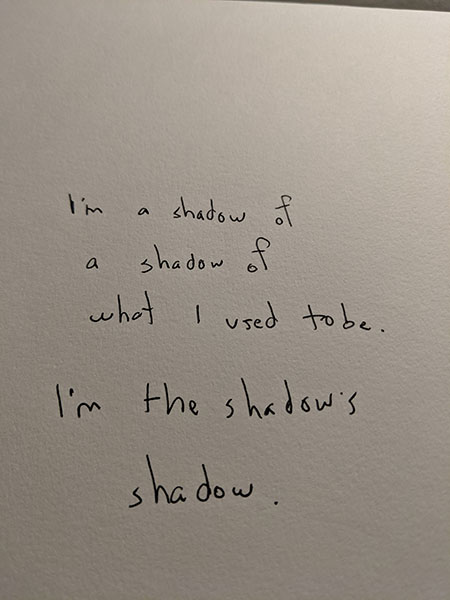 I'm a shadow of
a shadow of
what I used to be.
I'm the shadow's
shadow.